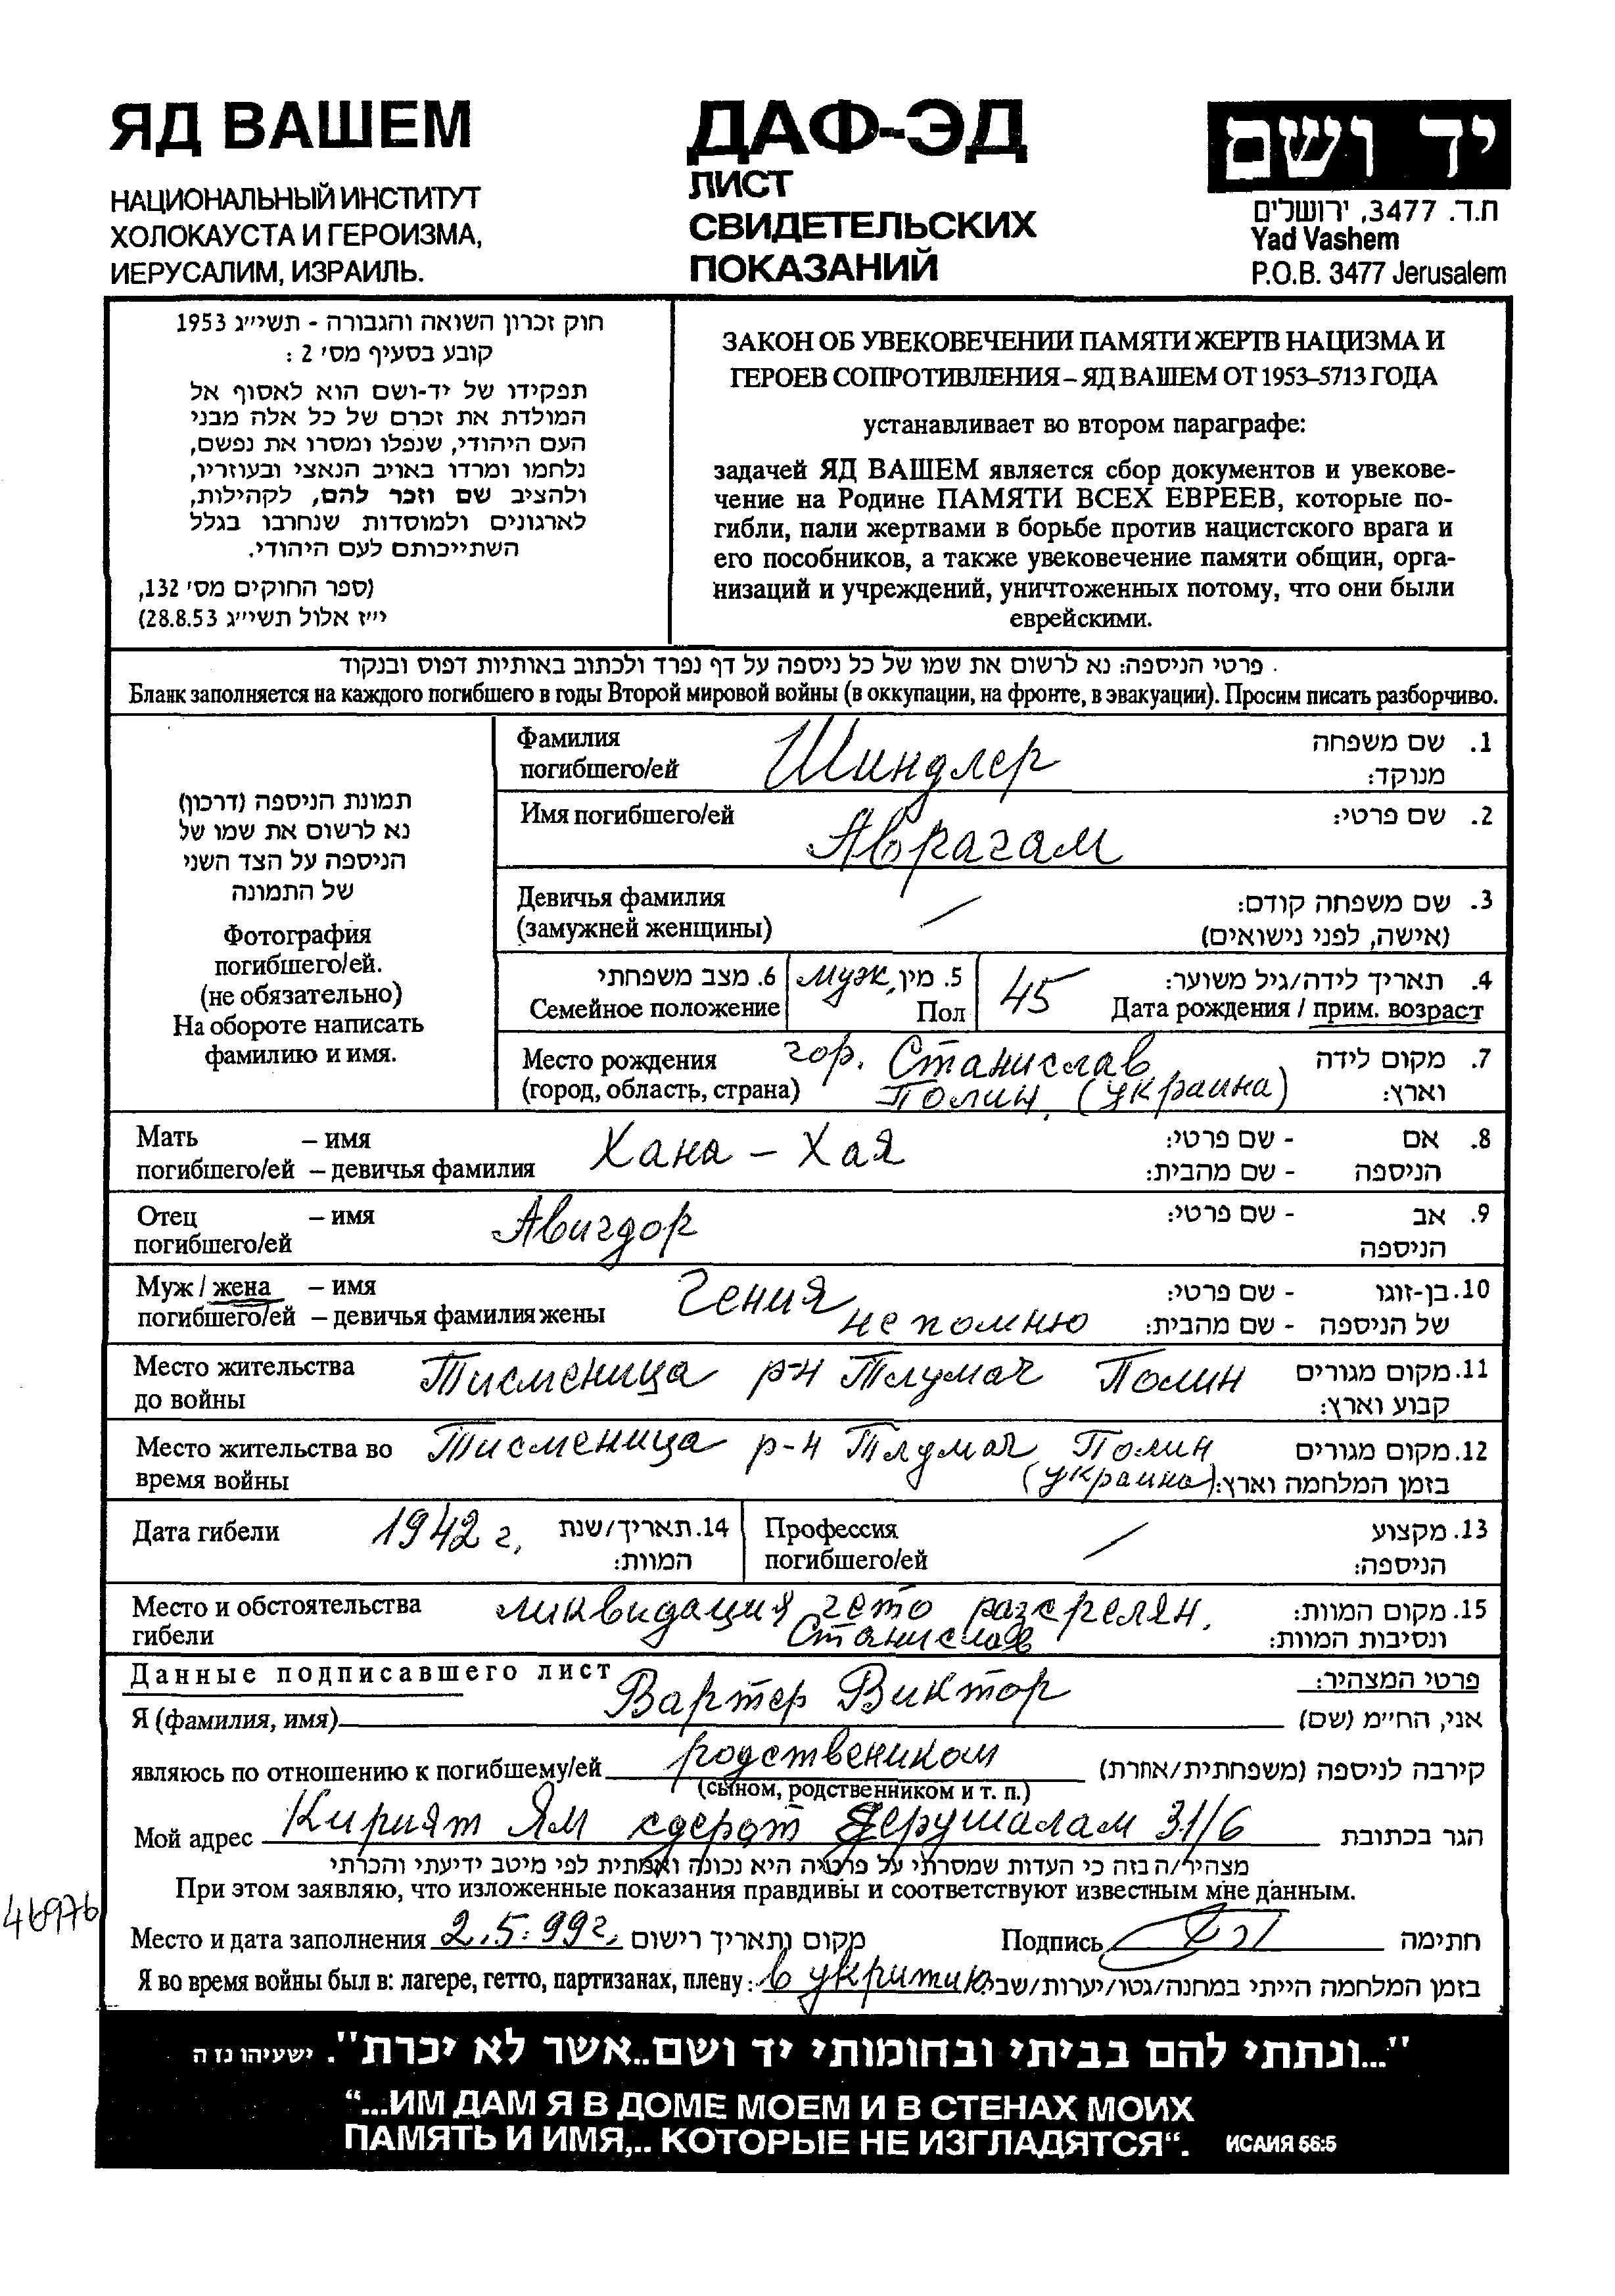 ЯД ВАШЕМ
НАЦИОНАЛЬНЫЙ ИНСТИТУТ
ХОЛОКАУСТА И ГЕРОИЗМА,
ИЕРУСАЛИМ, ИЗРАИЛЬ.
ДАФ-ЭД
ЛИСТ
СВИДЕТЕЛЬСКИХ
ПОКАЗАНИЙ
יד ושם
ת.ד. 3477, ירושלים
Yad Vashem
P.O.B. 3477 Jerusalem
חוק זכרון השואה והגבורה - תשי״ג 1953
קובע בסעיף מס׳ 2 :
תפקידו של יד-ושם הוא לאסוף אל
המולדת את זכרם של כל אלה מבני
העם היהודי, שנפלו ומסרו את נפשם,
נלחמו ומרדו באויב הנאצי ובעוזריו,
ולהציב שם וזכר להם, לקהילות,
לארגונים ולמוסדות שנחרבו בגלל
השתייכותם לעם היהודי.
(ספר החוקים מס׳ 132,
י״ז אלול תשי״ג 28.8.53)
ЗАКОН ОБ УВЕКОВЕЧЕНИИ ПАМЯТИ ЖЕРТВ НАЦИЗМА И
ГЕРОЕВ СОПРОТИВЛЕНИЯ – ЯД ВАШЕМ ОТ 1953–5713 ГОДА
устанавливает во втором параграфе:
задачей ЯД ВАШЕМ является сбор документов и увекове-
чение на Родине ПАМЯТИ ВСЕХ ЕВРЕЕВ, которые по-
гибли, пали жертвами в борьбе против нацистского врага и
его пособников, а также увековечение памяти общин, орга-
низаций и учреждений, уничтоженных потому, что они были
еврейскими.
פרטי הניספה: נא לרשום את שמו של כל ניספה על דף נפרד ולכתוב באותיות דפוס ובנקוד
Бланк заполняется на каждого погибшего в годы Второй мировой войны (в оккупации, на фронте, в эвакуации). Просим писать разборчиво.
תמונת הניספה (דרכון)
נא לרשום את שמו של
הניספה על הצד השני
של התמונה
Фотография
погибшего/ей.
(не обязательно)
На обороте написать
фамилию и имя.
Фамилия Шиндлер 1. שם משפחה
погибшего/ей מנוקד:
Имя погибшего/ейАврагам 2. שם פרטי:
Девичья фамилия / 3. שם משפחה קודם:
(замужней женщины) (אישה, לפני נישואים)
6. מצב משפחתי муж. 5. מין 45 4. תאריך לידה/גיל משוער:
Семейное положение Пол Дата рождения / прим. возраст
Место рождения гор. Станислав 7. מקום לידה
(город, область, страна) Полин. (Украина) וארץ:
Мать – имя Хана – Хая - שם פרטי: 8. אם
погибшего/ей – девичья фамилия - שם מהבית: הניספה
Отец – имя Авигдор - שם פרטי: 9. אב
погибшего/ей הניספה
Муж / жена – имя Гения - שם פרטי: 10. בן-זוגו
погибшего/ей – девичья фамилия жены не помню - שם מהבית: של הניספה
Место жительства Тисменица р-н Тлумач Полин 11. מקום מגורים
до войны קבוע וארץ:
Место жительства во Тисменица р-н Тлумач Полин 12. מקום מגורים
время войны (Украина) בזמן המלחמה וארץ:
Дата гибели 1942 г. 14. תאריך/שנת Профессия / 13. מקצוע
המוות: погибшего/ей הניספה:
Место и обстоятельства ликвидация гето разстрелян. 15. מקום המוות:
гибели Станислав ונסיבות המוות:
Данные подписавшего лист פרטי המצהיר:
Я (фамилия, имя) Вартер Виктор אני, הח״מ (שם)
являюсь по отношению к погибшему/ей родствеником קירבה לניספה (משפחתית/אחרת)
(сыном, родственником и т. п.)
Мой адрес Кирият Ям сдерот Ерушалаим 31/6 הגר בכתובת
מצהיר/ה בזה כי העדות שמסרתי על פרטיה היא נכונה ואמתית לפי מיטב ידיעתי והכרתי
При этом заявляю, что изложенные показания правдивы и соответствуют известным мне данным.
46976
Место и дата заполнения 2.5.99г. מקום ותאריך רישום Подпись חתימה
Я во время войны был в: лагере, гетто, партизанах, плену: в укритию בזמן המלחמה הייתי במחנה/גטו/יערות/שבי:
"...ונתתי להם בביתי ובחומותי יד ושם..אשר לא יכרת". ישעיהו נז ה
“...ИМ ДАМ Я В ДОМЕ МОЕМ И В СТЕНАХ МОИХ
ПАМЯТЬ И ИМЯ,.. КОТОРЫЕ НЕ ИЗГЛАДЯТСЯ“. ИСАИЯ 56:5